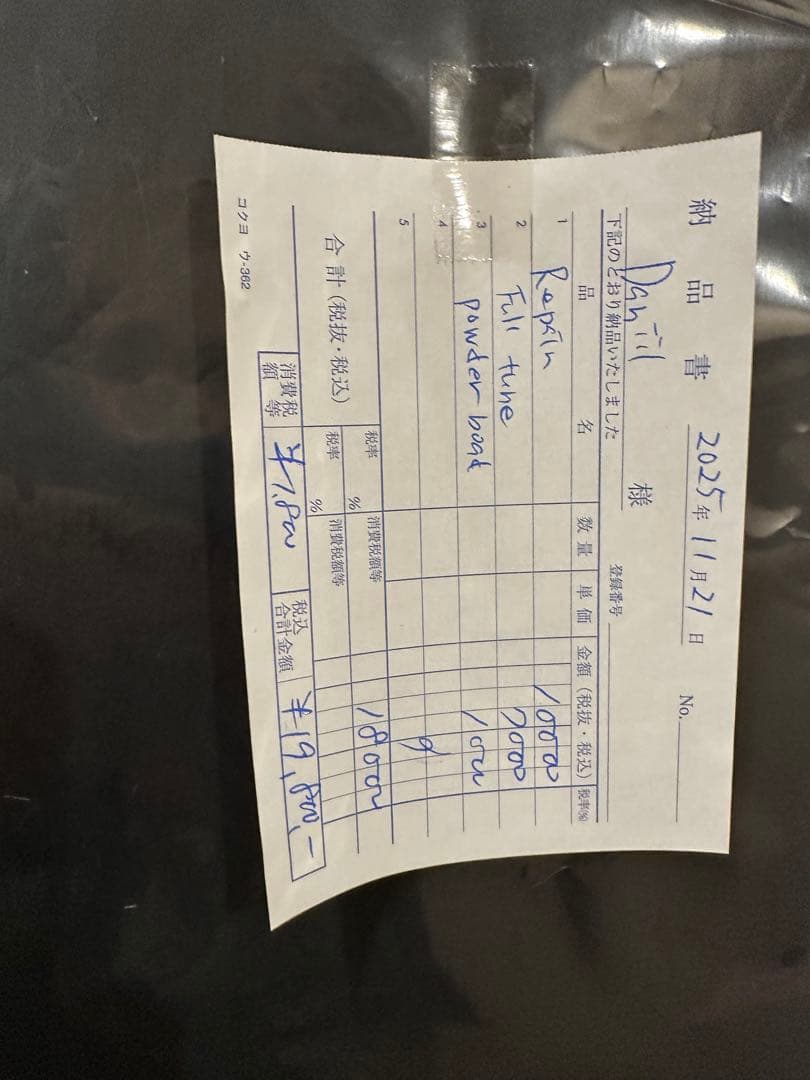 納品書 2025年11月21日 No.
Daniil 様
下記のとおり納品いたしました 登録番号
品名 数量 単価 金額（税抜・税込） 税率(%)
1 Repair 10000
2 Full tune 7000
3 powder board 1000
4
5
合計（税抜・税込） 税率 % 消費税額等 18000
税率 % 消費税額等
消費税額等 ¥1,800 税込合計金額 ¥19,800,-
コクヨ ウ-362